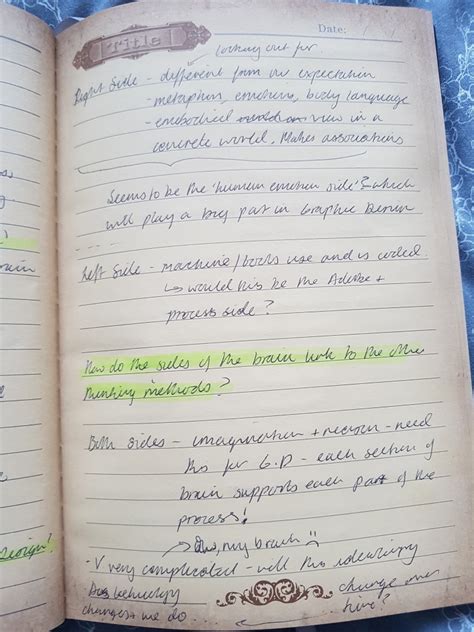 Title
Date: / /
looking out for
Right Side - different from our expectation
- metaphor, emotions, body language
- embodied view in a
concrete world. Makes associations
Seems to be the 'human emotion side'? - which
will play a big part in Graphic Design
Left Side - machine/tools use and is coded.
↳ would this be the Adobe +
process side?
How do the sides of the brain link to the other
thinking methods?
Both sides - imagination + reason - need
this for G.D - each section of
brain supports each part of the
process!
→ Ow, my brain
- V very complicated - will this
change over
time?
changes + we do..